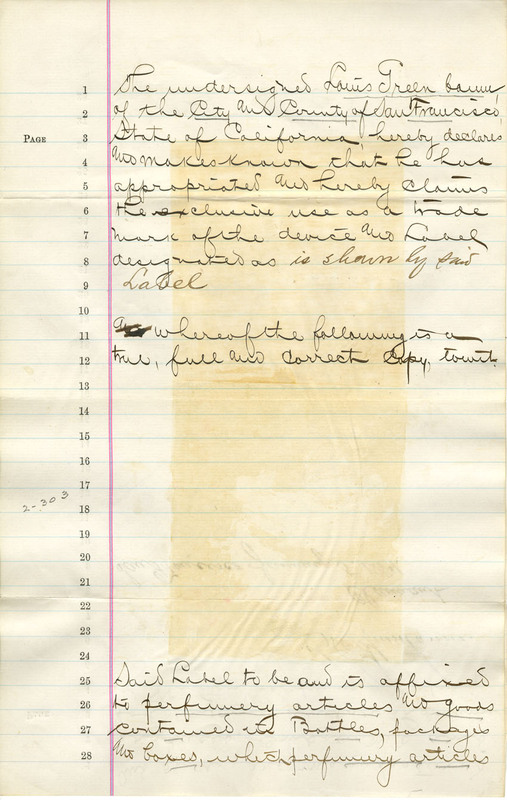 1 The undersigned Louis Treen
2 of the City and County of San Francisco,
PAGE 3 State of California, hereby declares
4 and makes known that he has
5 appropriated and hereby claims
6 the exclusive use as a trade
7 mark of the device and Label
8 designated as is shown by said
9 Label
10
11 whereof the following is a
12 true, full and correct copy, towit.
13
14
15
16
17
2-303
18
19
20
21
22
23
24
25 Said Label to be and is affixed
26 to perfumery articles and goods
27 contained in Bottles, packages
28 and boxes, which perfumery articles